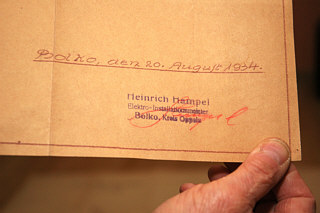 Bolko, den 20. August 1934.
Heinrich Hampel
Elektro-Installationsmeister
Bolko, Kreis Oppeln